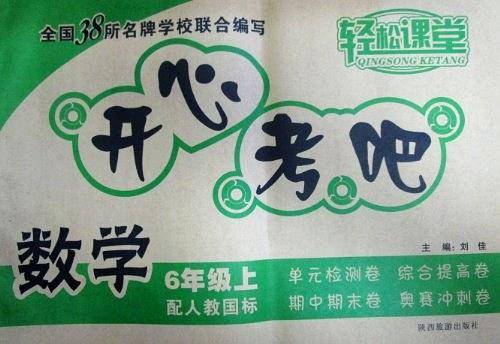 全国38所名牌学校联合编写
轻松课堂
QINGSONG KETANG
开心考吧
数学
6年级上
配人教国标
主编 刘佳
单元检测卷 综合提高卷
期中期末卷 奥赛冲刺卷
陕西旅游出版社